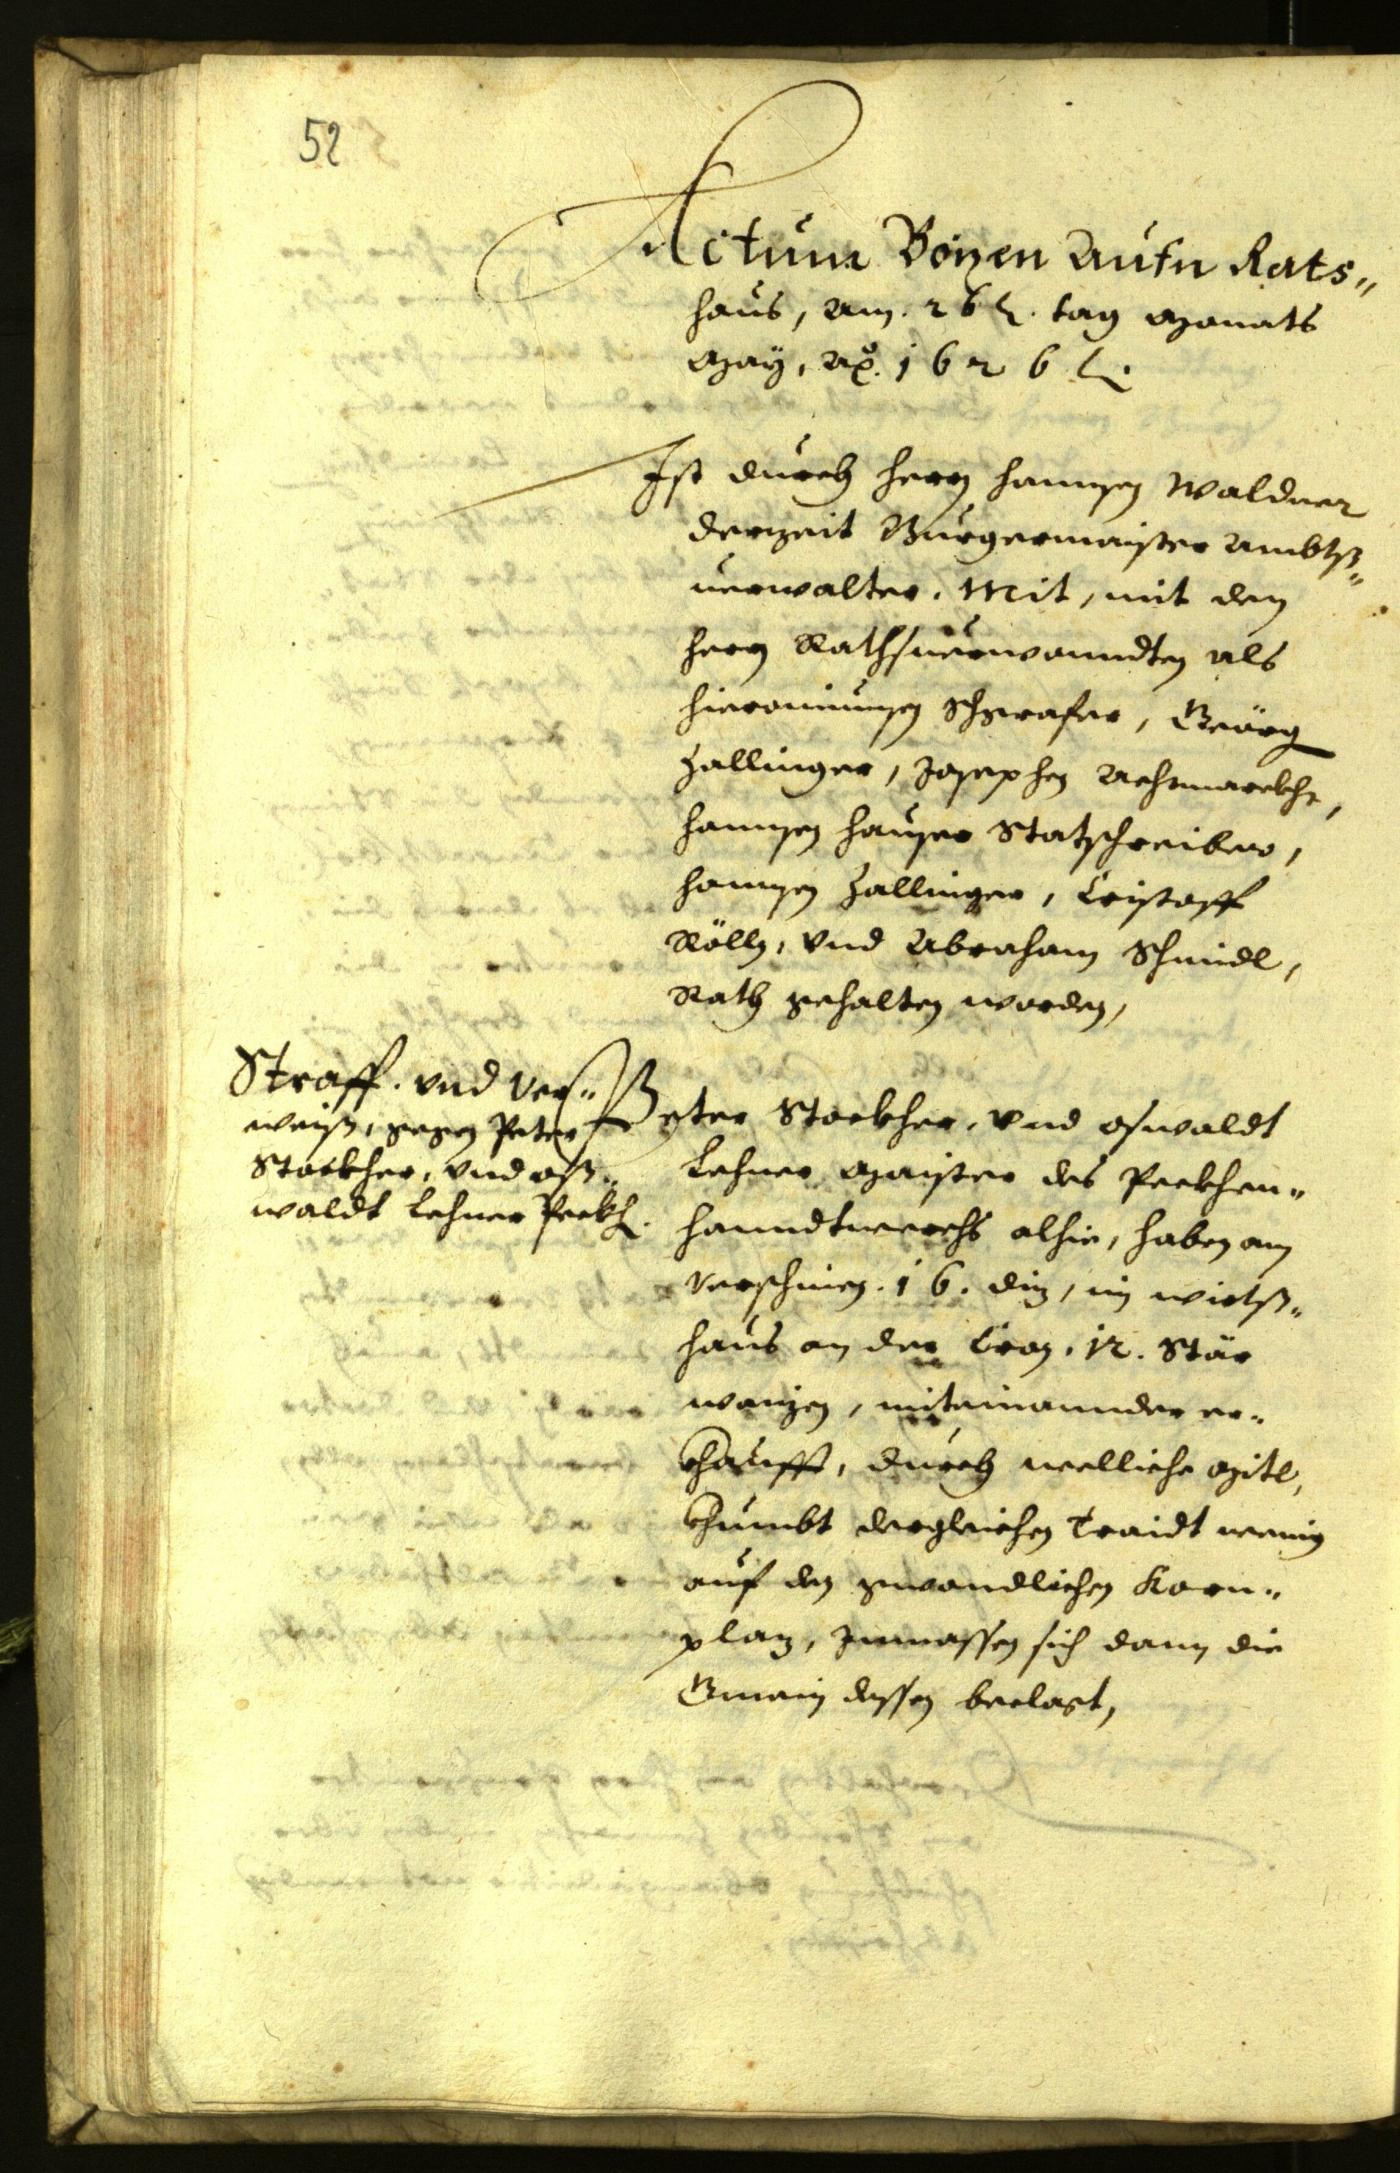 52
Actum Botzen Aufn Rats„
haus, Am. 26 t. tag Monats
May, Ao. 1626 t.
Ist durch Herrn Hannsen Waldner
derzeit Burgermaister Ambtß„
uerwalter. Mit, mit den
Herrn Rathsuerwanndten als
Hieronimusen Schgrafer, Geörg
Zallinger, Josephen
Hannsen Hauser Statschreiber,
Hannsen Zallinger, Cristoff
Röllin, Vnd Abraham Schmidl,
Rath gehalten worden,
Straff. vnd Ver„
weiß, gegen Peter
Stockher, Vnd oß„
waldt Lehner Peckh.
Peter Stockher, Vnd oswaldt
Lehner Maister des Peckhen„
Hanndtwerchs alhie, haben am
Verschinen. 16. diz, im wirtß„
haus an der Cron. 12. Stär
waizen, miteinannder er„
khaufft, durch welliche Mitl,
khumbt dergleichen Traidt wenig
auf den gwandlichen Korn„
plaz, Inmassen sich dann die
Gmain dessen beclagt,